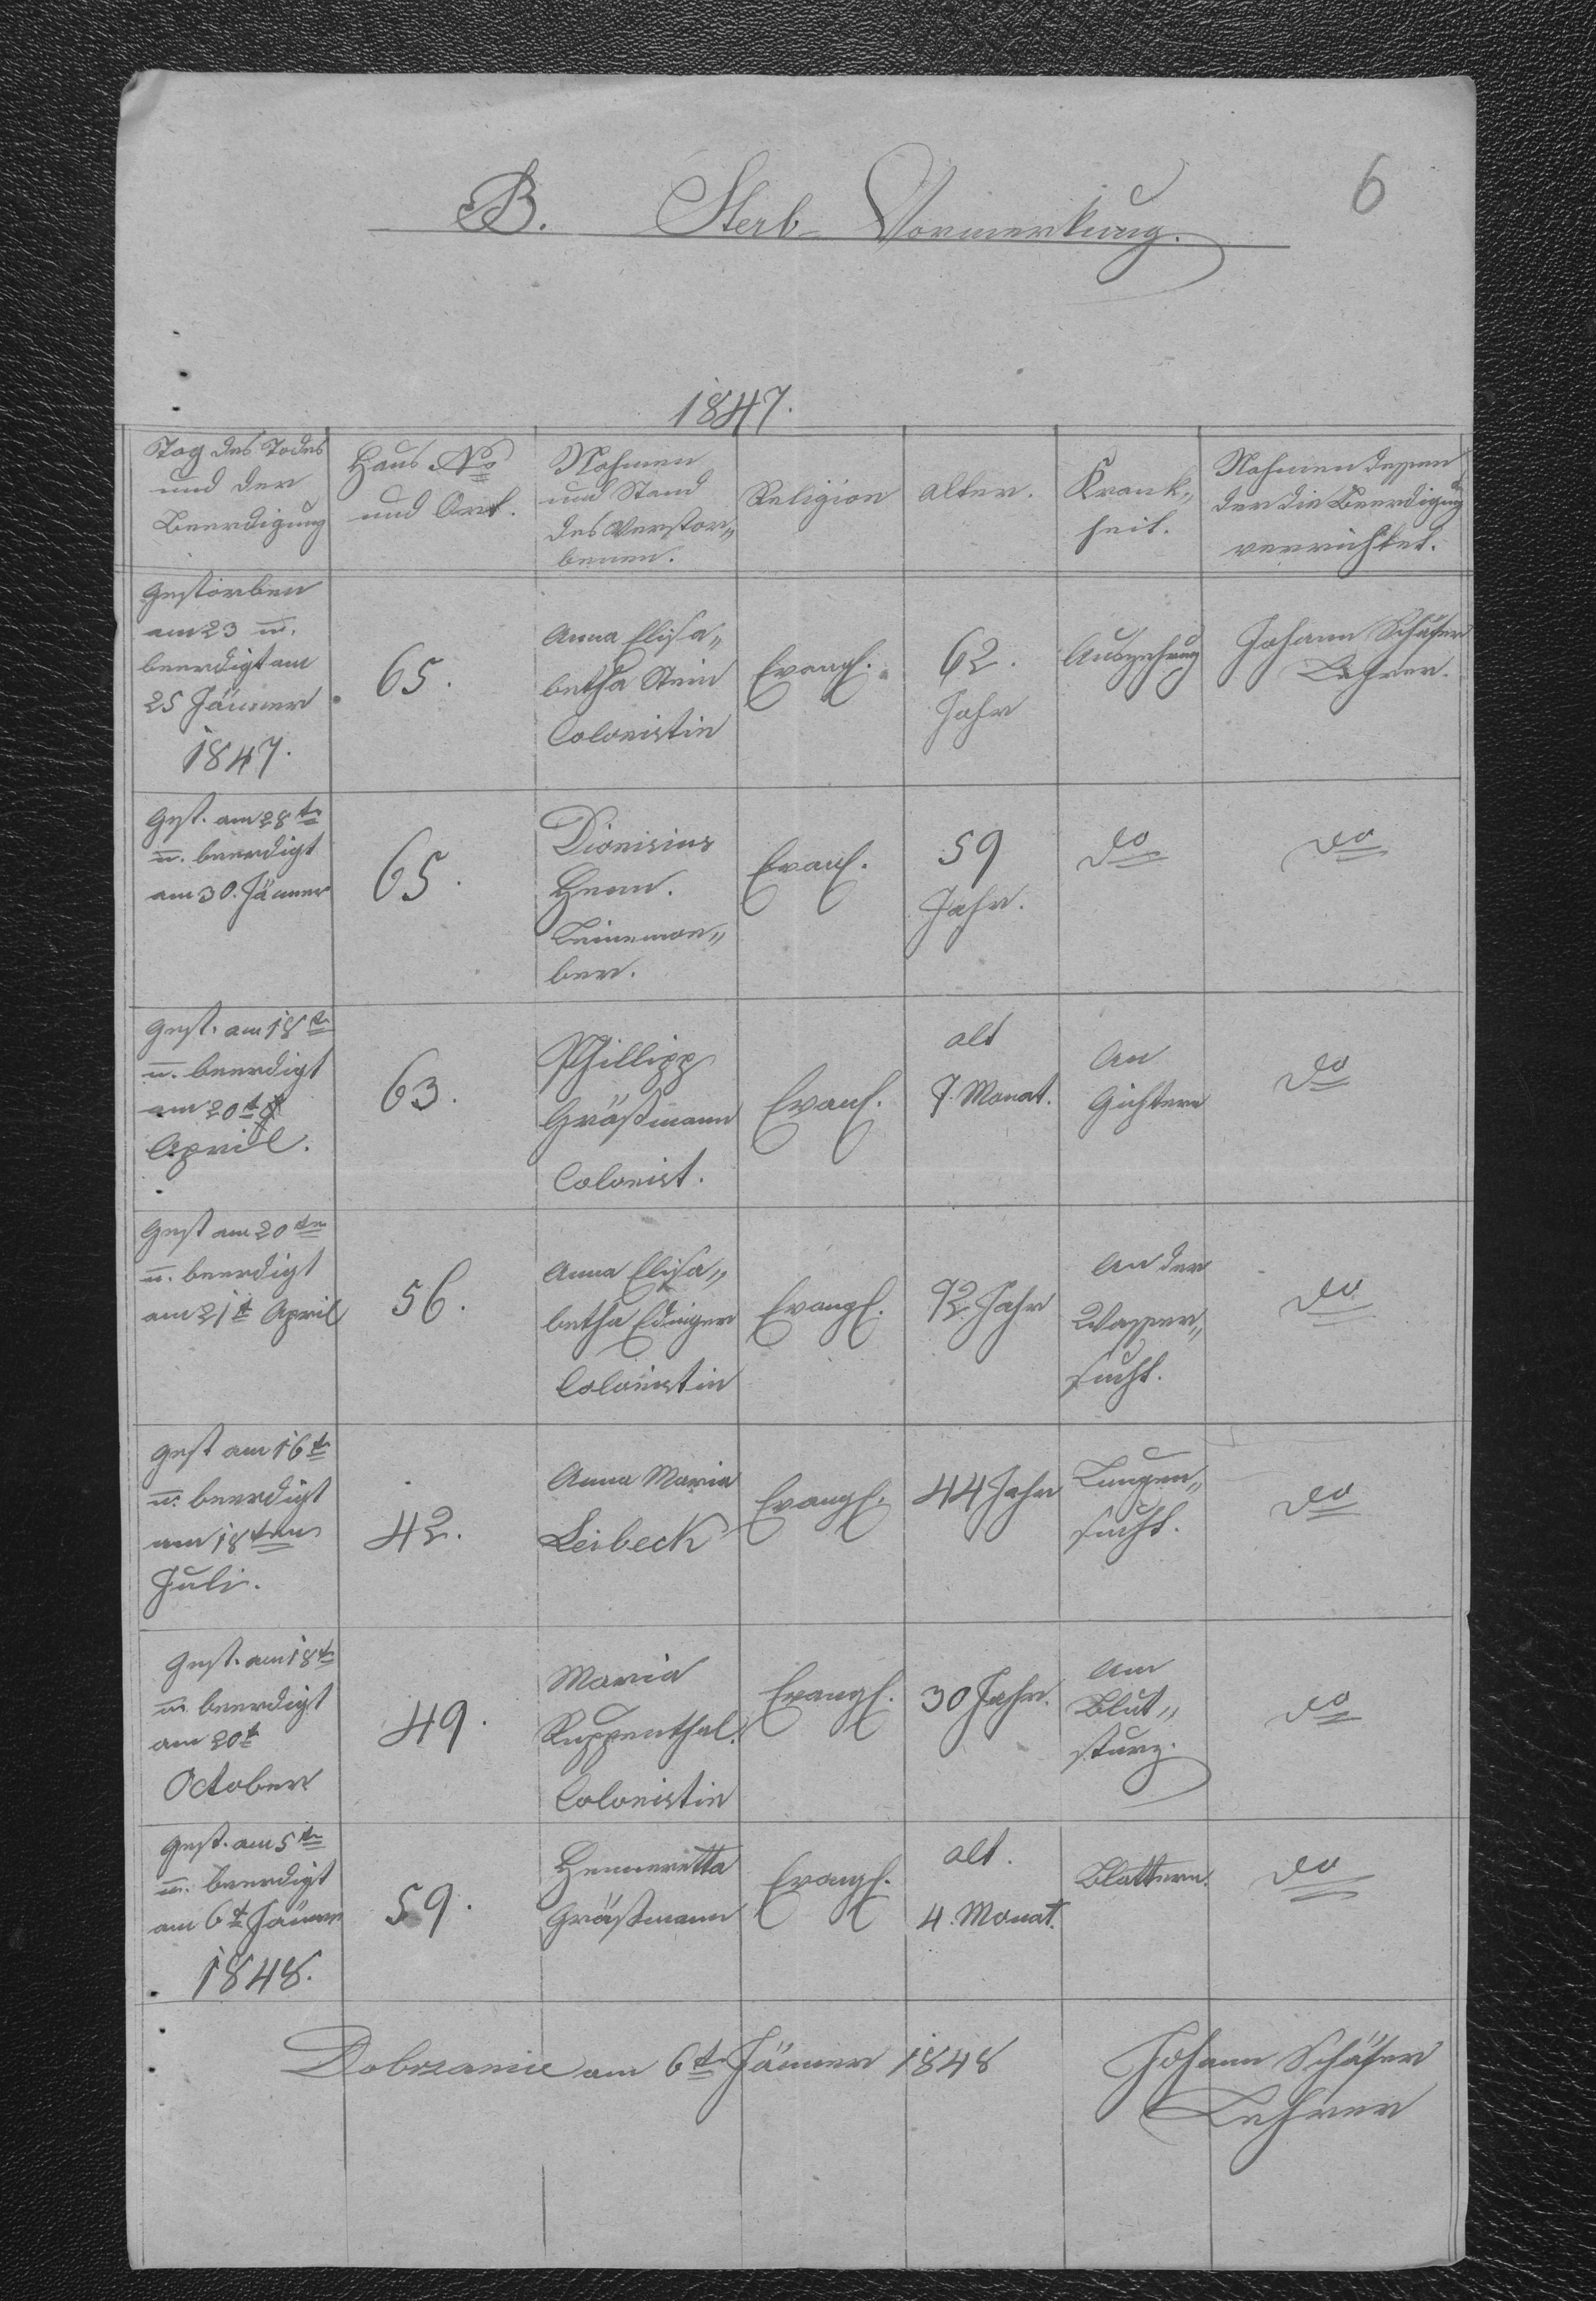 6
B. Sterb-Vormerkung.
1847.
Tag des Todes
und der
Beerdigung
Haus No
und Ort.
Nahmen
und Stand
des Verstor„
benen.
Religion
alter.
Krank„
heit.
Nahmen dessen
der die Beerdigung
verrichtet.
Gestorben
am 23 u.
beerdigt am
25 Jänner
1847.
65.
Anna Elisa„
betha Stein
Colonistin
Evangl.
62.
Jahr
Auszehrung
Johann Schäfer
Lehrer.
Gest. am 28t
u. beerdigt
am 30. Jänner
65.
Dionisius
Henn.
Leineweber.
Evanl.
59
Jahr.
do
do
Gest. am 18t
u. beerdigt
am 20t
April.
63.
Phillipp
Gräßmann
Colonist.
Evanl.
alt
7. Monat.
An
Gichtern
do
Gest am 20ten
u. beerdigt
am 21t April
56.
Anna Elisa„
betha Edinger
Colonistin
Evangl.
72 Jahr
An der
Wasser„
sucht.
do
Gest am 16t
u. beerdigt
am 18ten
Juli.
42.
Anna Maria
Leibeck
Evangl.
44 Jahr
Lungen„
sucht.
do
Gest. am 18t
u. beerdigt
am 20t
October
49.
Maria
Ruppenthal.
Colonistin
Evangl.
30 Jahr.
Am
Blut„
sturz.
do
Gest. am 5t
u. beerdigt
am 6t Jänner
1848.
59.
Henneretta
Gräßmann
Evangl.
alt.
4. Monat.
Blattern.
do
Dobrzanie am 6t Jänner 1848
Johann Schäfer
Lehrer